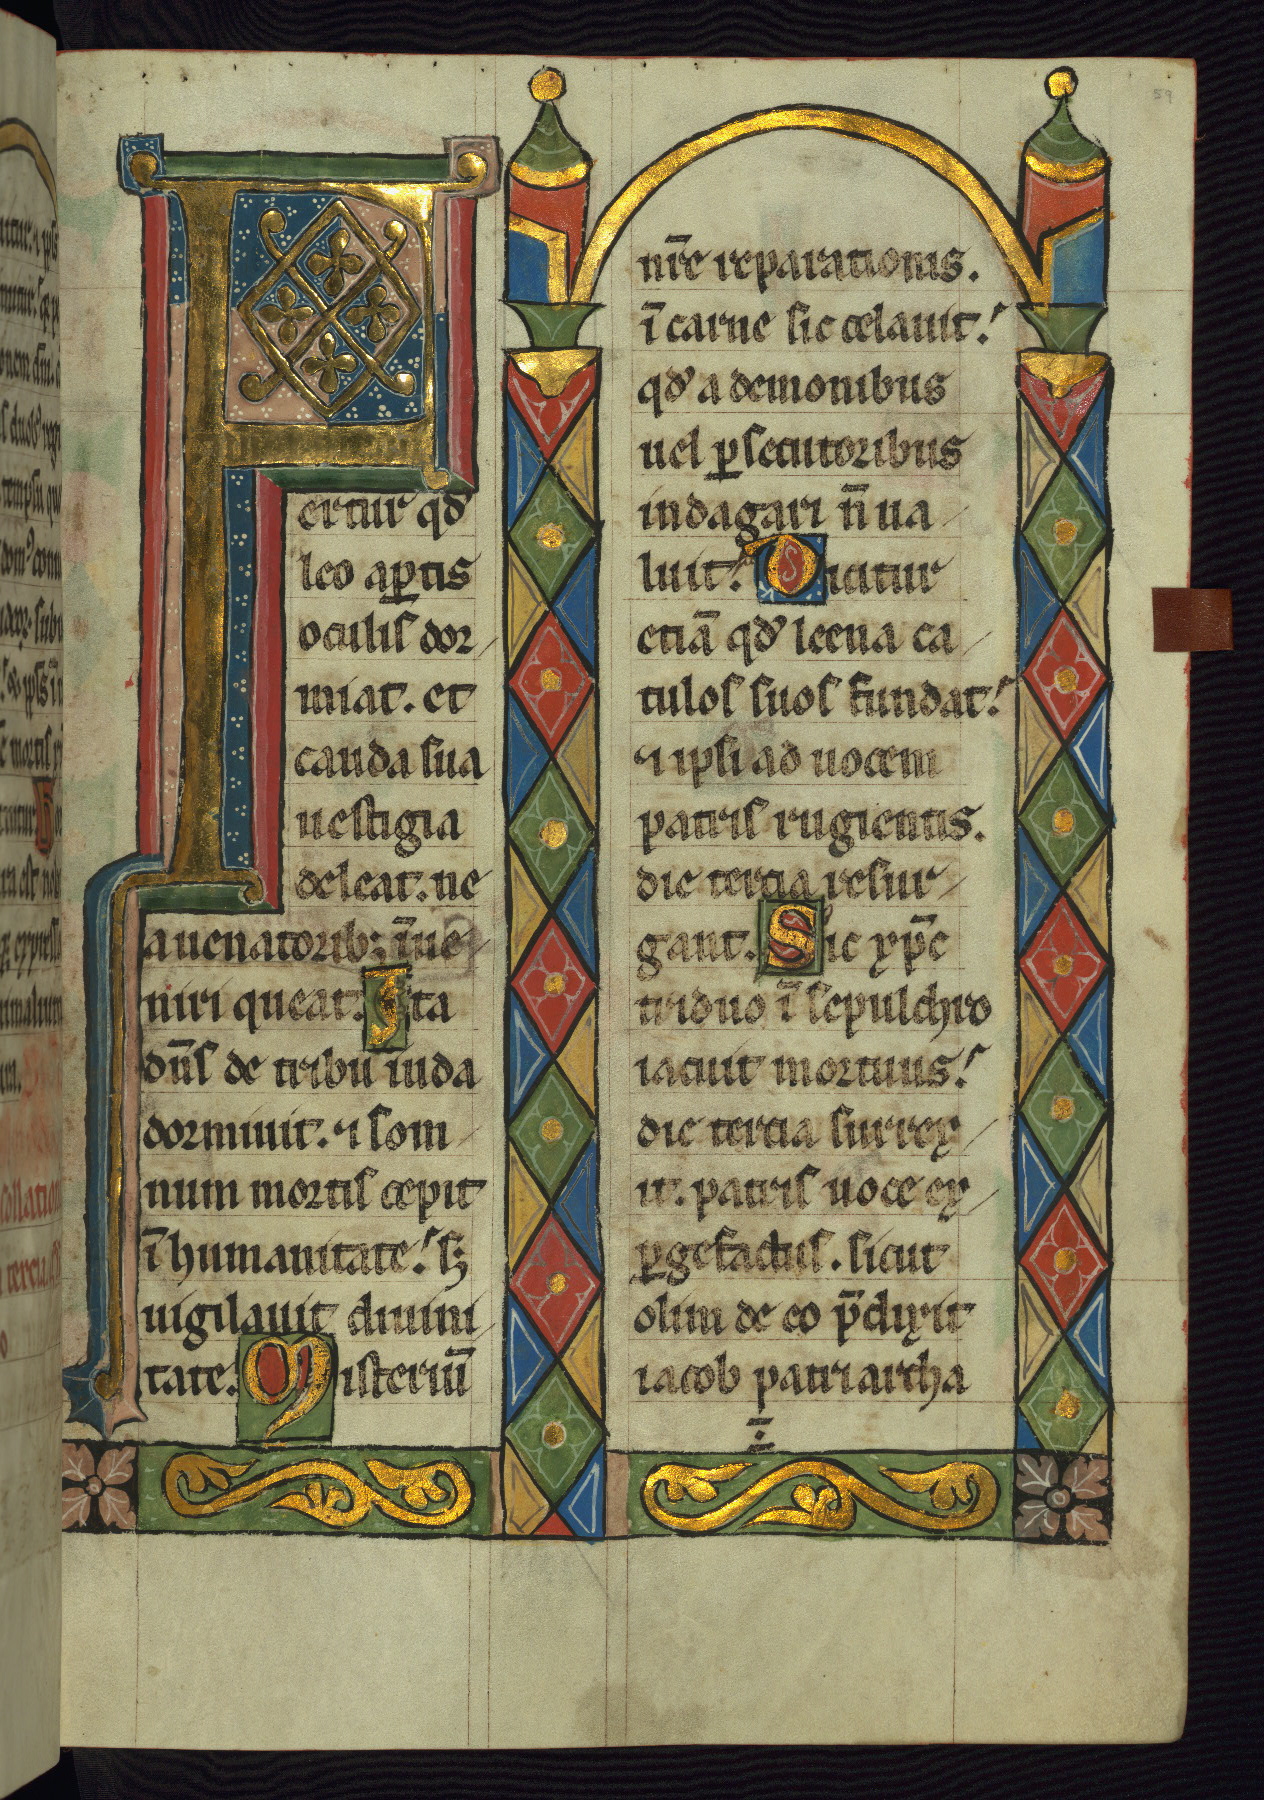 Fertur qd̕
leo aꝑtis
oculiſ dor⸗
miat. et
cauda ſua
ueſtigia
deleat. ne
a uenatorib; īue⸗
niri queat. Ita
dn̄ſ de tribu iuda
dormiuit. ⁊ ſom⸗
num mortiſ cepit
ī humanitate.᾽ ſꝫ
uigilauit diuini⸗
tate. Miſteriū
nr̄e reparationis.
ī carne ſic celauit.᾽
qd̕ a demonibus
uel ꝑſecutoribus
indagari n̄ ua⸗
luit.᾽ Dicitur
etiā qd̕ leena ca⸗
tuloſ ſuoſ fundat.᾽
⁊ ipſi ad uocem
patriſ rugientis.
die tertia reſur⸗
gant. Sic xp̄c
triduo ī ſepulchro
iacuit mortuus.᾽
die tertia ſurrex⸗
it. patriſ uoce ex⸗
ꝑgefactuſ. ſicut
olim de eo p̄dixit
iacob patriarcha
59